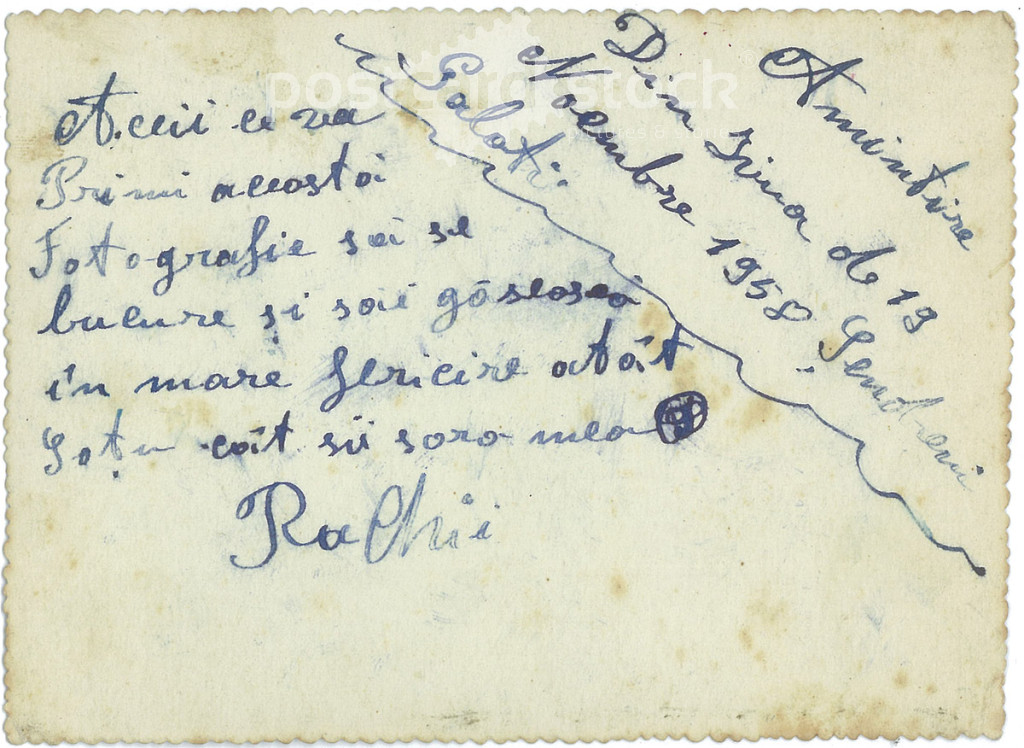 Amintire
Din Ziua de 19
Noembre 1958 Șendreni
Galați.
Aceii ce va
Primi aceostă
Fotografie să se
bucure și săi găsească
în mare fericire atât
Soțu cât si sora mea
Rachii
postcardstock